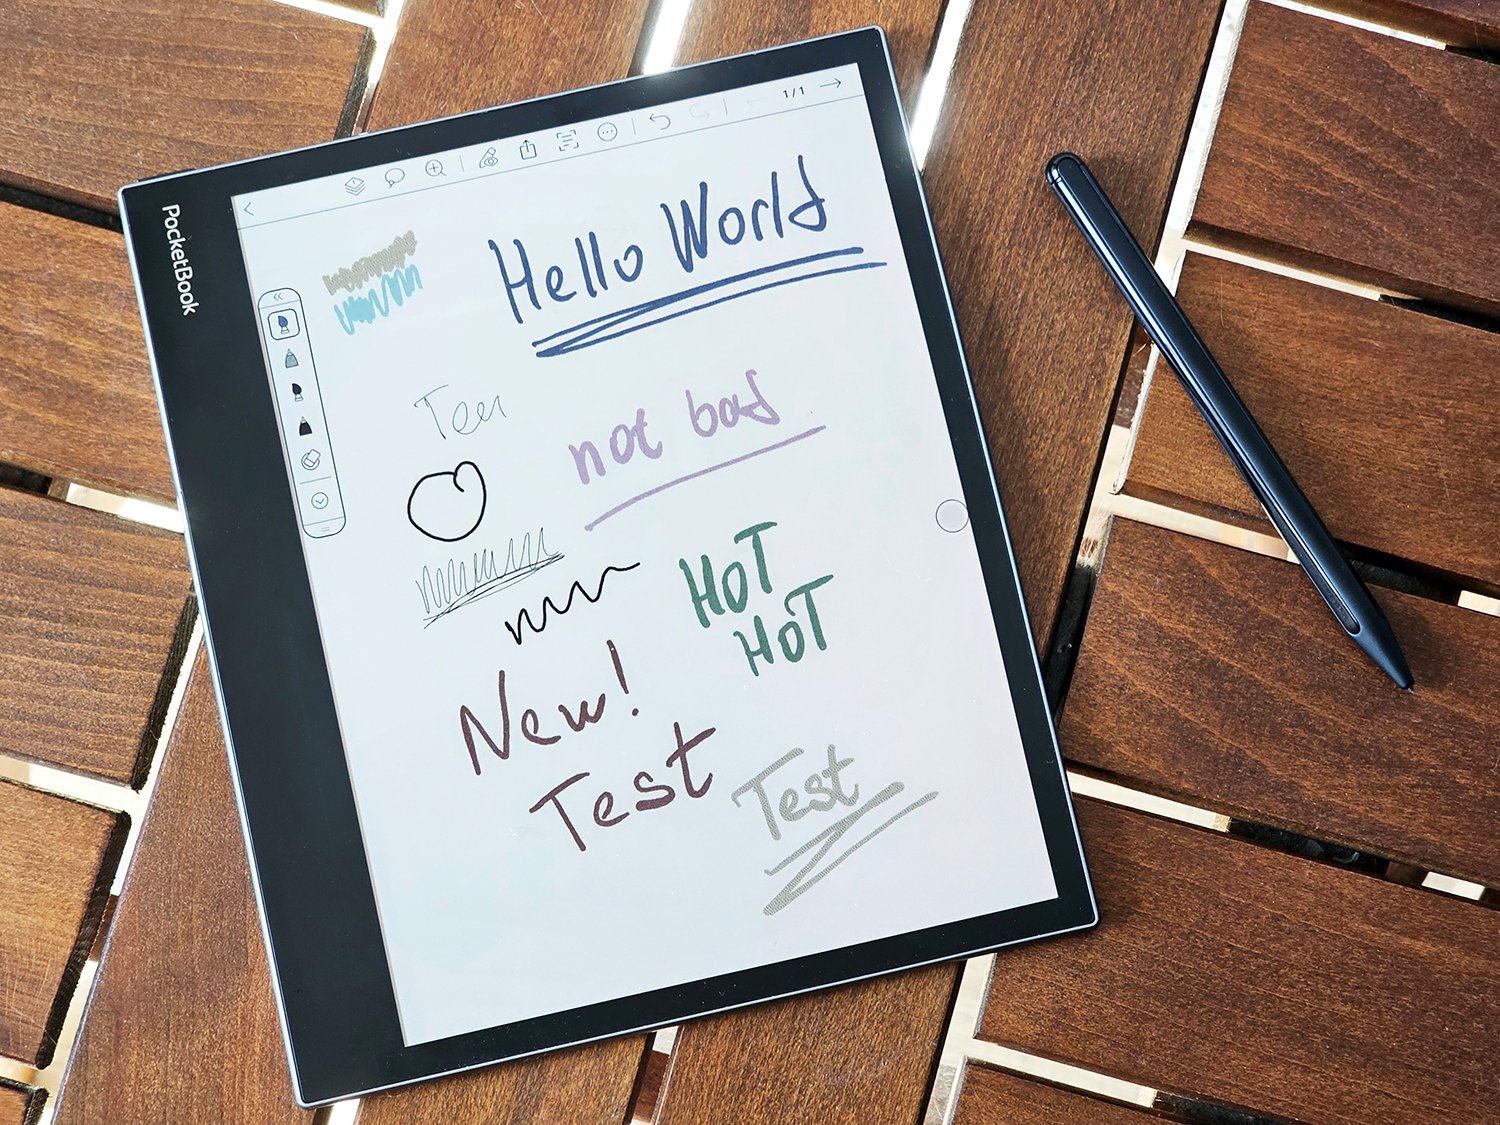 PocketBook
1/1
Hello World
not bad
HOT
HOT
New!
Test
Test